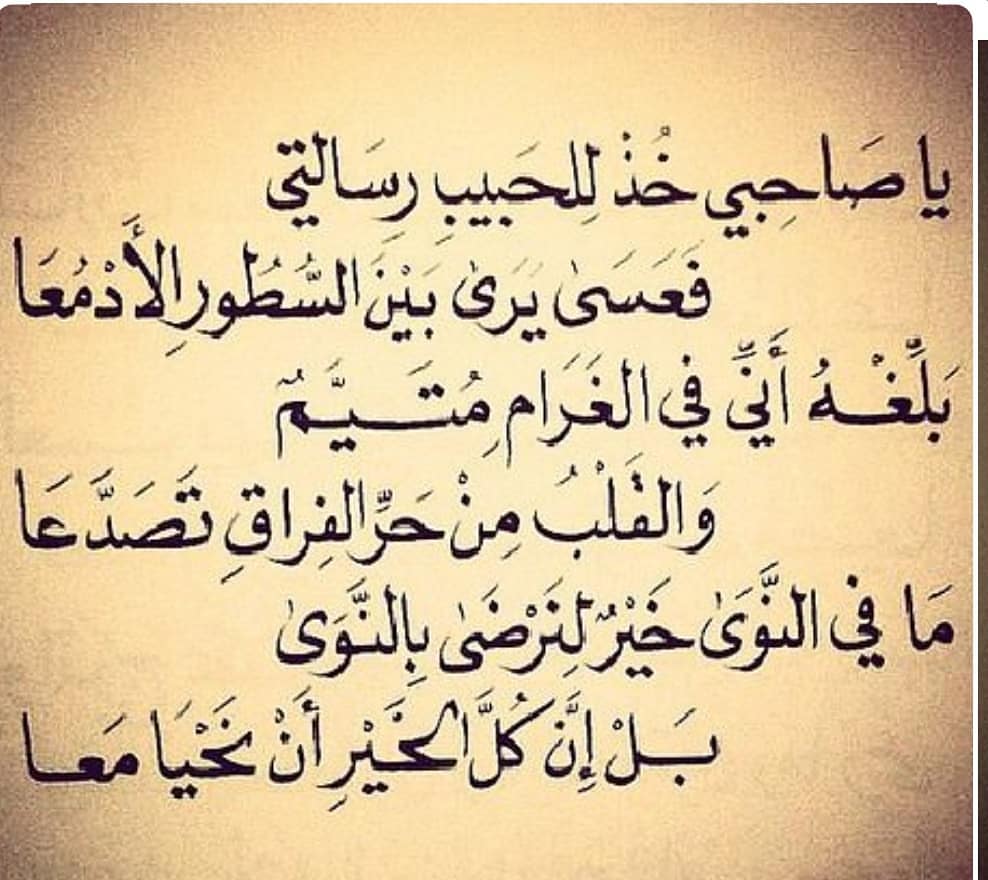 يا صَاحِبي خُذْ لِلحَبيبِ رِسَالتي
فَعَسَىٰ يَرىٰ بَيْنَ السُّطُورِ الأَدْمُعَا
بَلِّغْهُ أَنِّي في الغَرَامِ مُتَيَّمٌ
وَالقَلْبُ مِنْ حَرِّ الفِراقِ تَصَدَّعَا
مَا في النَّوَىٰ خَيْرٌ لِنَرْضَىٰ بِالنَّوَىٰ
بَلْ إِنَّ كُلَّ الخَيْرِ أَنْ نَحْيَا مَعَا